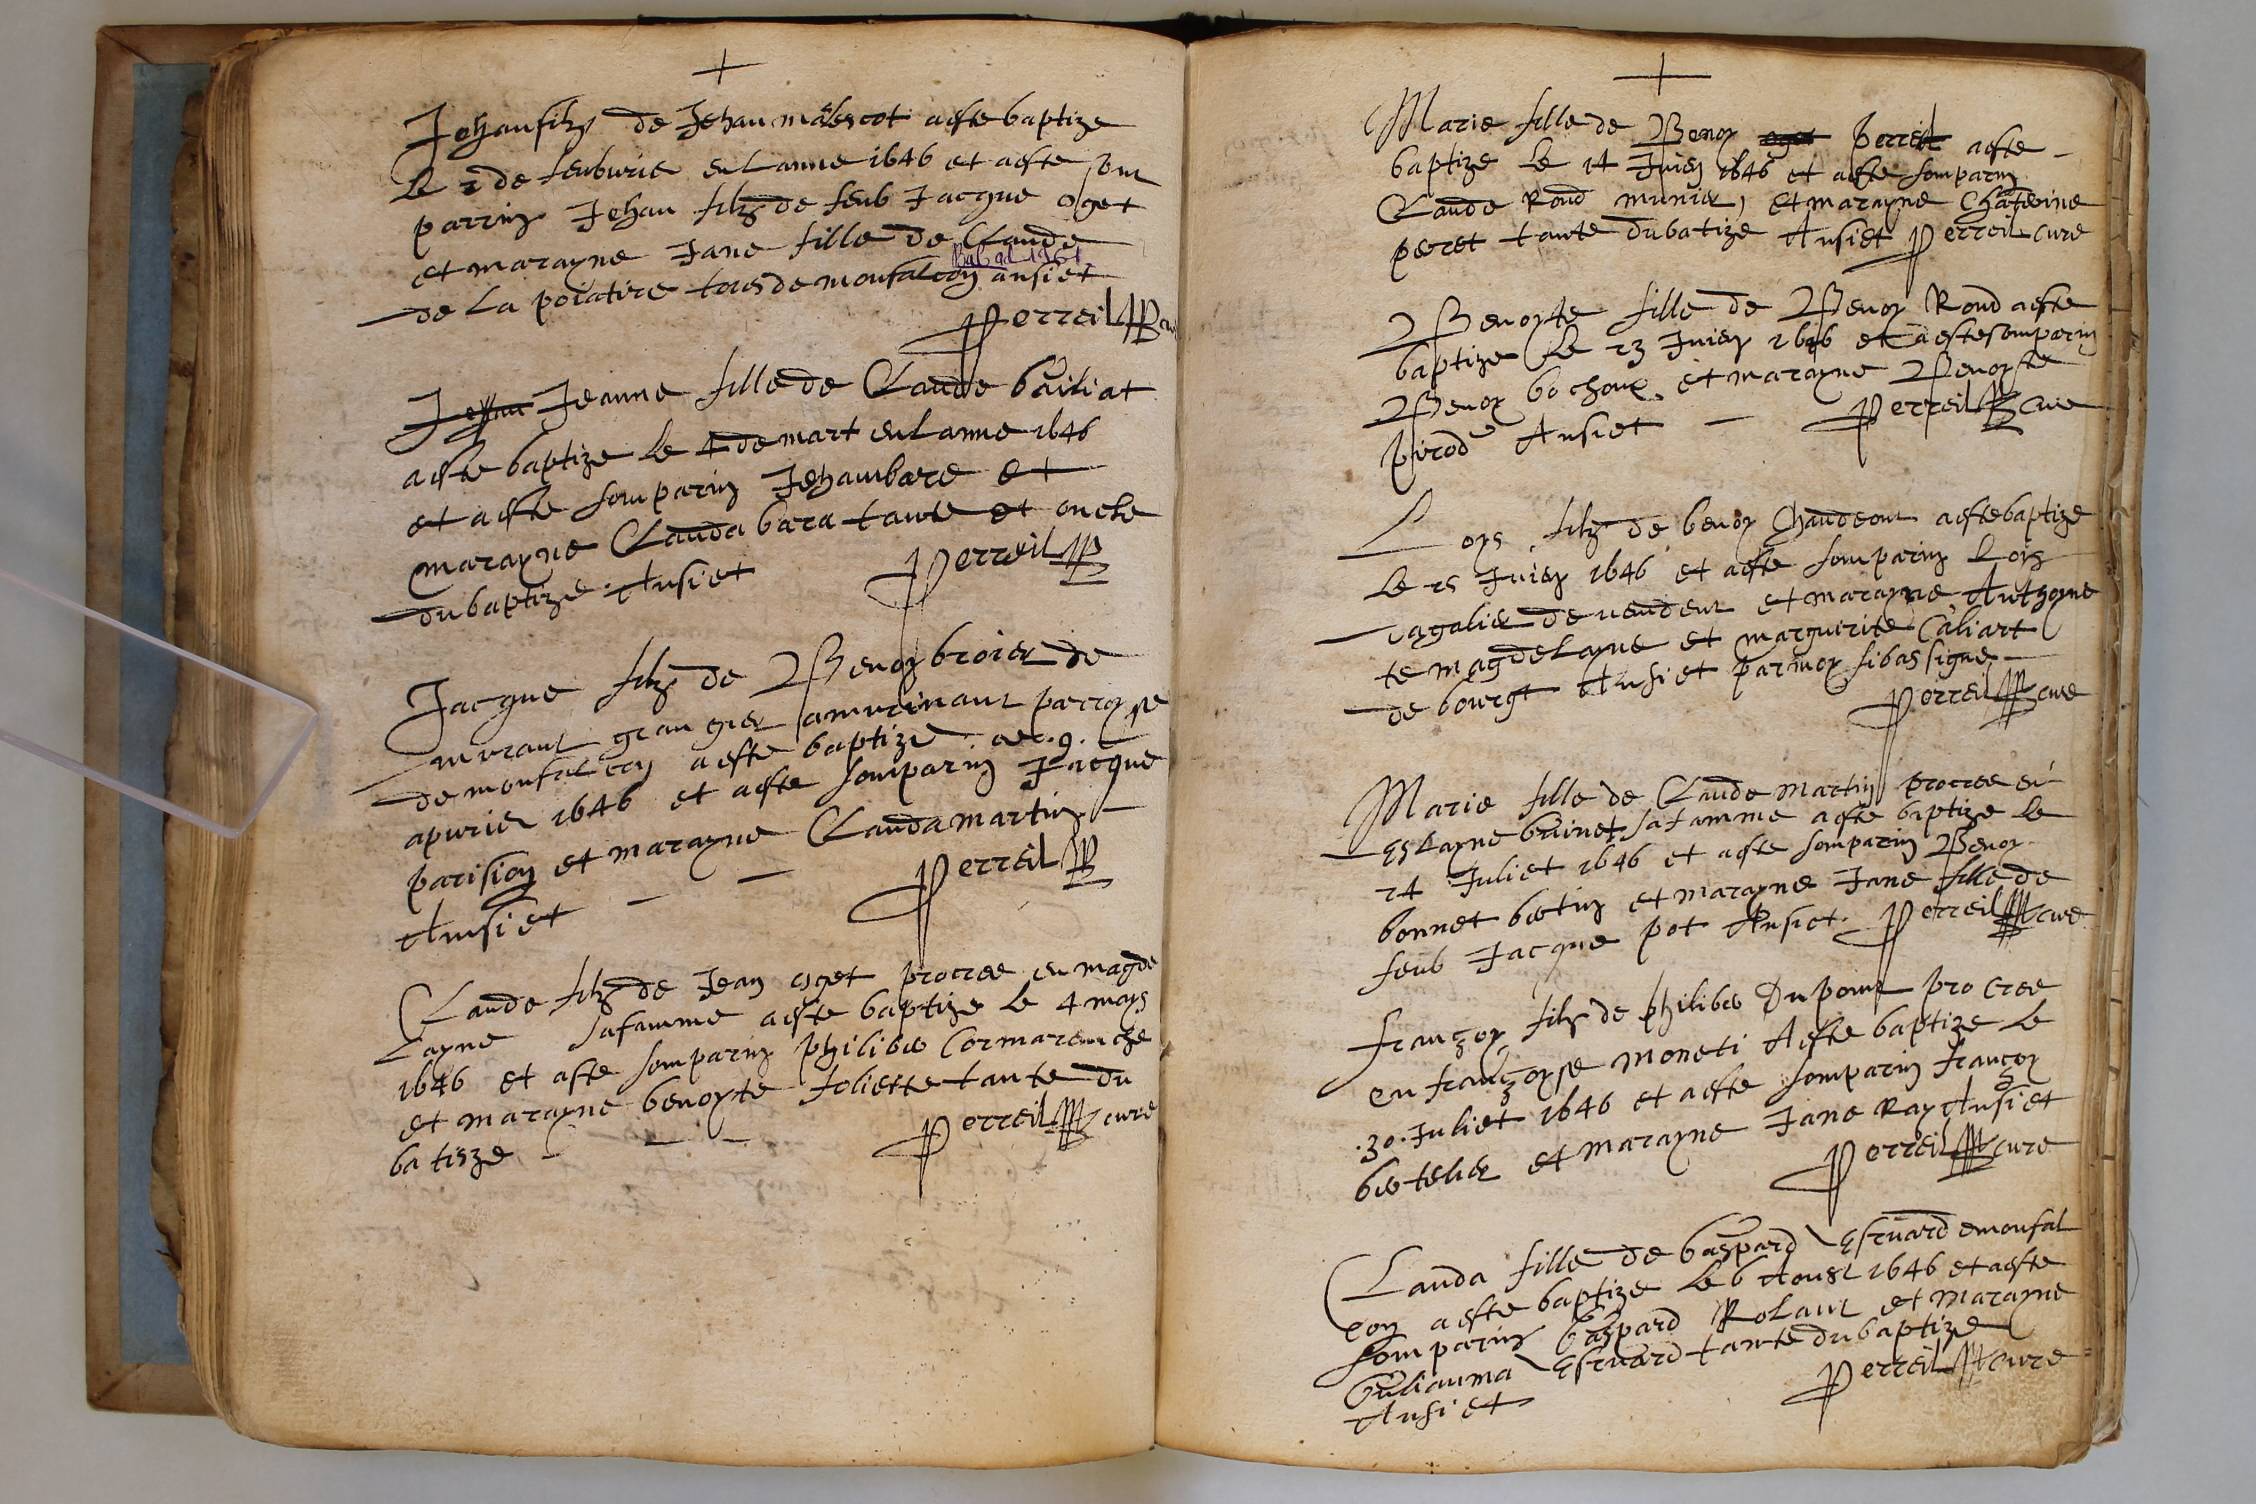 Jehan filz de Jehan maescot aeste baptize
le 2 de feuburie en Lanne 1646 et aeste son
parrin Jehan filz de feub Jacque oget
et marayne Jane fille de Claude
de La poiatire tous de monfalcon ainsiet
Perreil cure
Jehan Jeanne fille de Claude bailiat
aeste baptize le 4 de mart en Lanne 1646
et aeste son parin Jehan bare et
marayne Clauda bara tante et oncle
du baptize Ainsiet
Perreil
Jacque filz de Benoy broier de
grangier parroyse
de monfalcon aeste baptize 9
apurier 1646 et aeste son parin Jacque
parision et marayne Clauda martin
Ainsiet
Perreil
Claude filz de Jean oget procree en magde
Layne sa famme aeste baptize le 4 mays
1646 et aste son parin philibe Cormarenche
et marayne benoyte Joliette tante du
batisze
Perreil cure
Marie fille de Benoy oget Perreil aeste
baptize le 14 Juien 1646 et aeste son parin
Claude Rond munier et marayne Chaterine
peret tante du batize Ainsiet Perreil cure
Benoyte fille de Benoy Rond aeste
baptize Le 23 Juien 1646 et aeste son parin
Benoy bochoux et marayne Benoyste
pirod Ainsiet
Perreil cure
Loys filz de benoy Chaudeon aeste baptize
le 25 Juien 1646 et aeste son parin Lois
et marayne Anthoyne
te magdelayne et marguirite Caliart
de bourgt Ainsiet par moy sibas signe
Perreil cure
Marie fille de Claude Martin procree en
Eslayne sa famme aeste baptize le
24 Juliet 1646 et aeste son parin Benoy
bonnet et marayne Jane fille de
feub Jacque pot Ainsiet Perreil cure
françoy filz de philibe Dupont procree
en françoyse moneti Aeste baptize Le
.30. Juliet 1646 et aeste son parin françoy
botelier et marayne Jane Ray Ainsiet
Perreil cure
Clauda fille de gaspard Esruard de monfal
con aeste baptize le 6 Aoust 1646 et aeste
son parin gaspard Rolant et marayne
guliauma Esruard tante du baptize
Ainsiet
Perreil cure